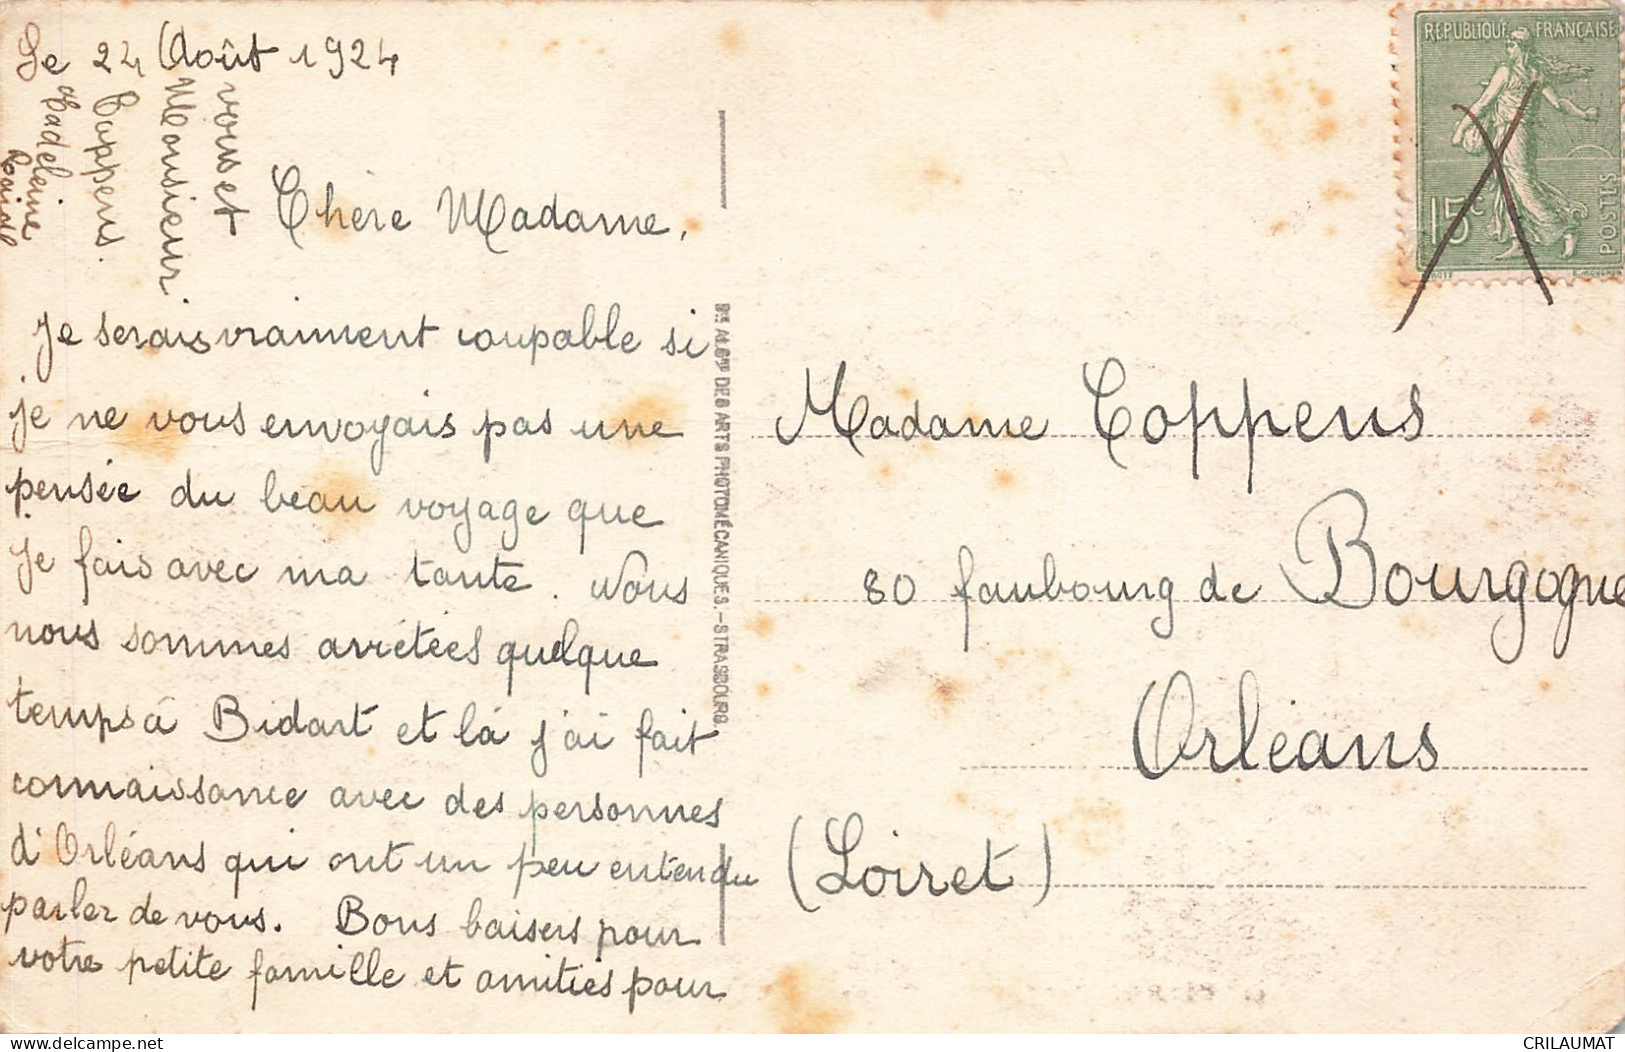 Le 24 Août 1924
Chère Madame,
Je serais vraiment coupable si
je ne vous envoyais pas une
pensée du beau voyage que
je fais avec ma tante. Nous
nous sommes arrêtées quelque
temps à Bidart et là j'ai fait
connaissance avec des personnes
d'Orléans qui ont un peu entendu
parler de vous. Bons baisers pour
votre petite famille et amitiés pour
vous et
Monsieur
Coppens.
Madeleine
Bte ALSne DES ARTS PHOTOMÉCANIQUES.-STRASBOURG.
REPUBLIQUE FRANÇAISE
15c
POSTES
Madame Coppens
80 faubourg de Bourgogne
Orléans
(Loiret)
CRILAUMAT